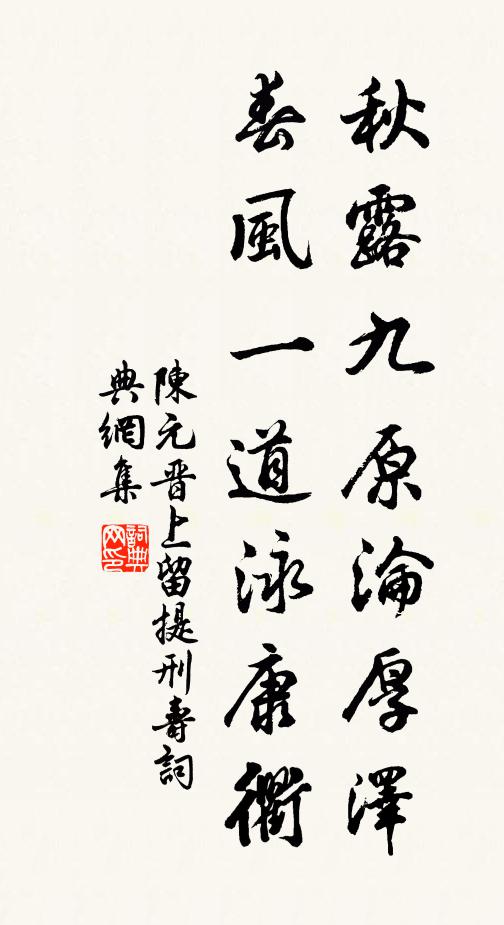 秋露九原淪厚澤
春風一道泳康衢
陳元晋上留提刑壽詞
典網集
詞典网印